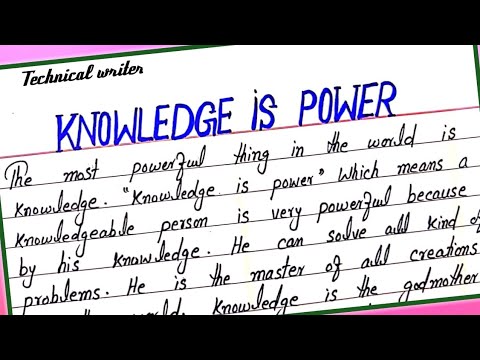 Technical writer
KNOWLEDGE iS POWER
The most powerful thing in the world is
Knowledge. "Knowledge is power" Which means a
Knowledgeable person is very powerful because
by his Knowledge. He can solve all kind of
problems. He is the master of all creations
world. Knowledge is the godmother